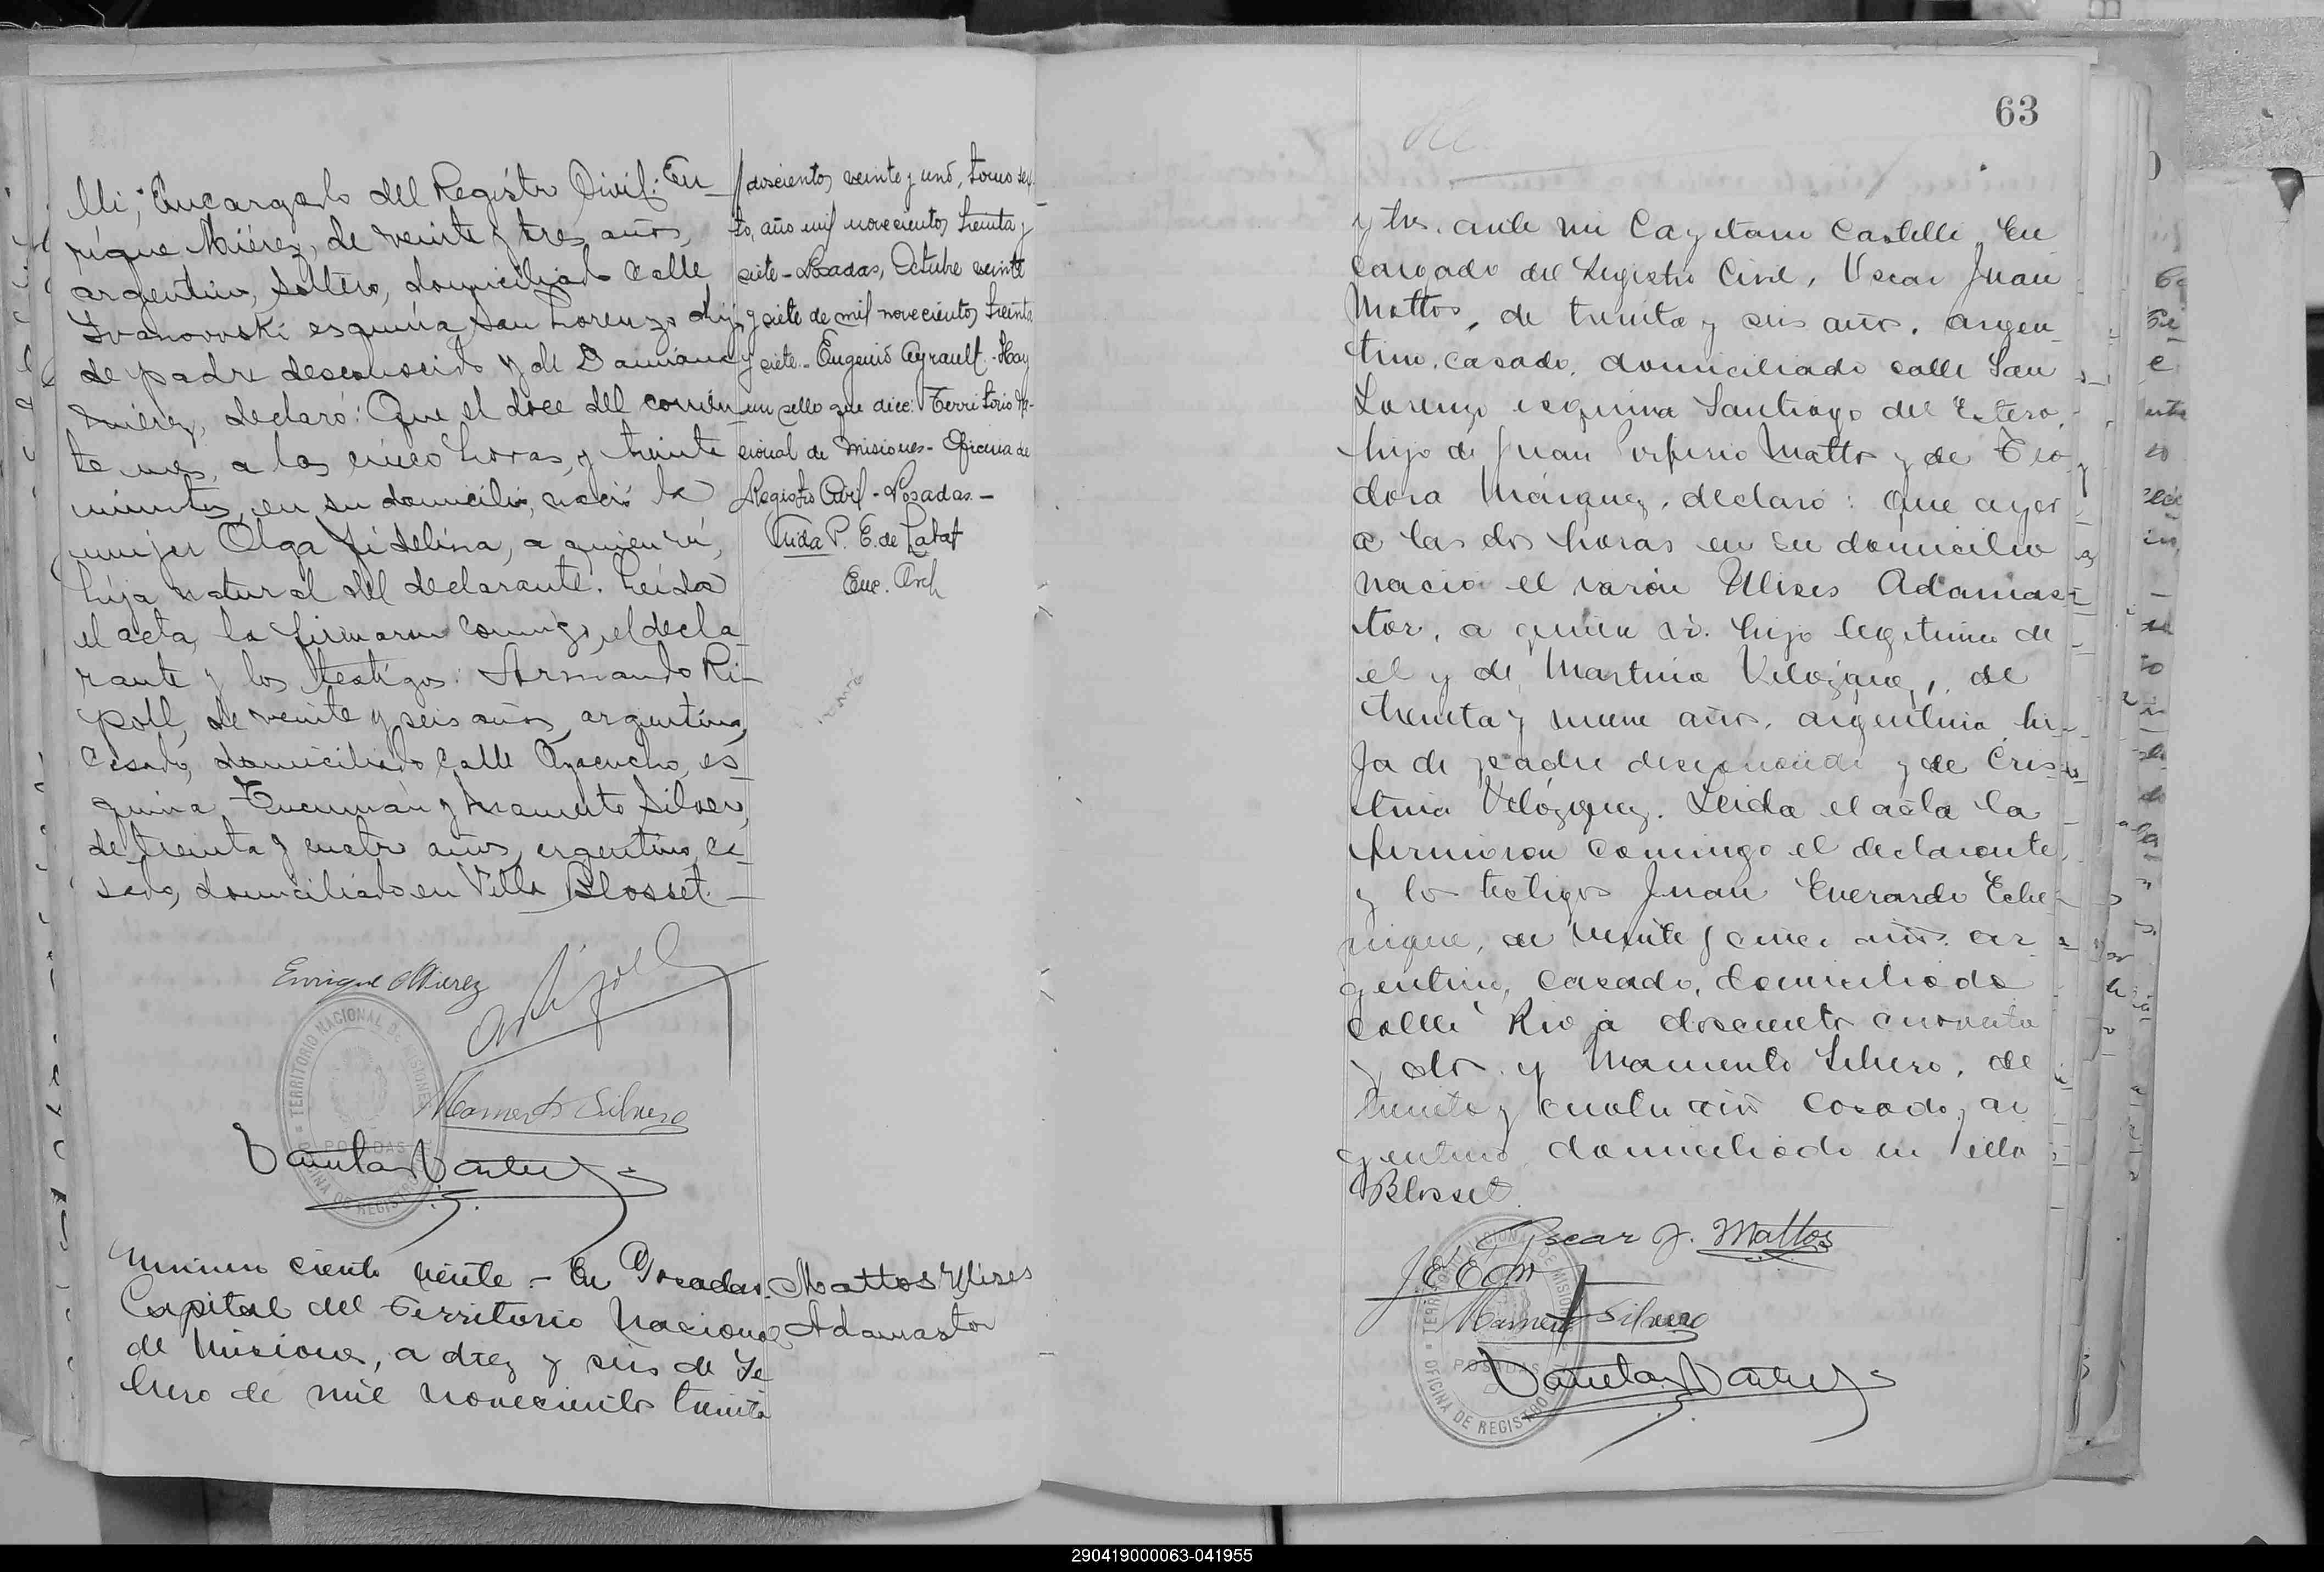 Mi, Encargado del Registro Civil: En-
rique Miérez, de veinte y tres años,
argentino, soltero, domiciliado calle
Ivanovski esquina San Lorenzo, hijo
de padre desconocido y de Damiana
Miérez, declaró: Que el doce del corrien
te mes, a las cinco horas y treinta
minutos, en su domicilio, nació la
mujer Olga Fidelina, a quien ví,
hija natural del declarante. Leída
el acta, la firmaron conmigo, el decla
rante y los testigos: Armando Ri-
poll, de veinte y seis años, argentino,
casado, domiciliado calle Ayacucho, es-
quina Tucumán y Mamerto Silvero,
de treinta y cuatro años, argentino, ca-
sado, domiciliado en Villa Blosset.-
/doscientos veinte y uno, tomo sex-
to, año mil novecientos treinta y
siete - Posadas, Octubre veinte
y siete de mil novecientos treinta
y siete.- Eugenio Ayrault.- Hay
un sello que dice: Territorio Na-
cional de Misiones - Oficina de
Registro Civil - Posadas.-
P. E. de Labat
Enc. Arch
Enrique Mierez
TERRITORIO NACIONAL DE MISIONES
POSADAS
OFICINA DE REGISTRO
Mamerto Silvero
Número ciento veinte - En Posadas
Capital del Territorio Nacional
de Misiones, a diez y seis de Fe
brero de mil novecientos treinta
Mattos Ulises
Adamastor
63
y tres. ante mi Cayetano Castelli, En
cargado del Registro Civil, Oscar Juan
Mattos, de treinta y seis años, argen
tino, casado, domiciliado calle San
Lorenzo esquina Santiago del Estero,
hijo de Juan Porfirio Mattos y de Teo
dora Márquez, declaró: Que ayer
a las dos horas en su domicilio
nació el varón Ulises Adamas-
tor, a quien ví. hijo legitimo de
el y de Martina Velázquez, de
treinta y nueve años, argentina, hi-
ja de padre desconocido y de Cris-
tina Velázquez. Leida el acta la
firmaron conmigo el declarante
y los testigos Juan Everardo Eche-
nique, de veinte y cinco años, ar
gentino, casado, domiciliado
calle Rioja doscientos cuarenta
y dos y Mamerto Silvero, de
treinta y cuatro años casado, ar
gentino domiciliado en Villa
Blosset
Oscar J. Mattos
Mamerto Silvero
TERRITORIO NACIONAL DE MISIONES
POSADAS
OFICINA DE REGISTRO
290419000063-041955